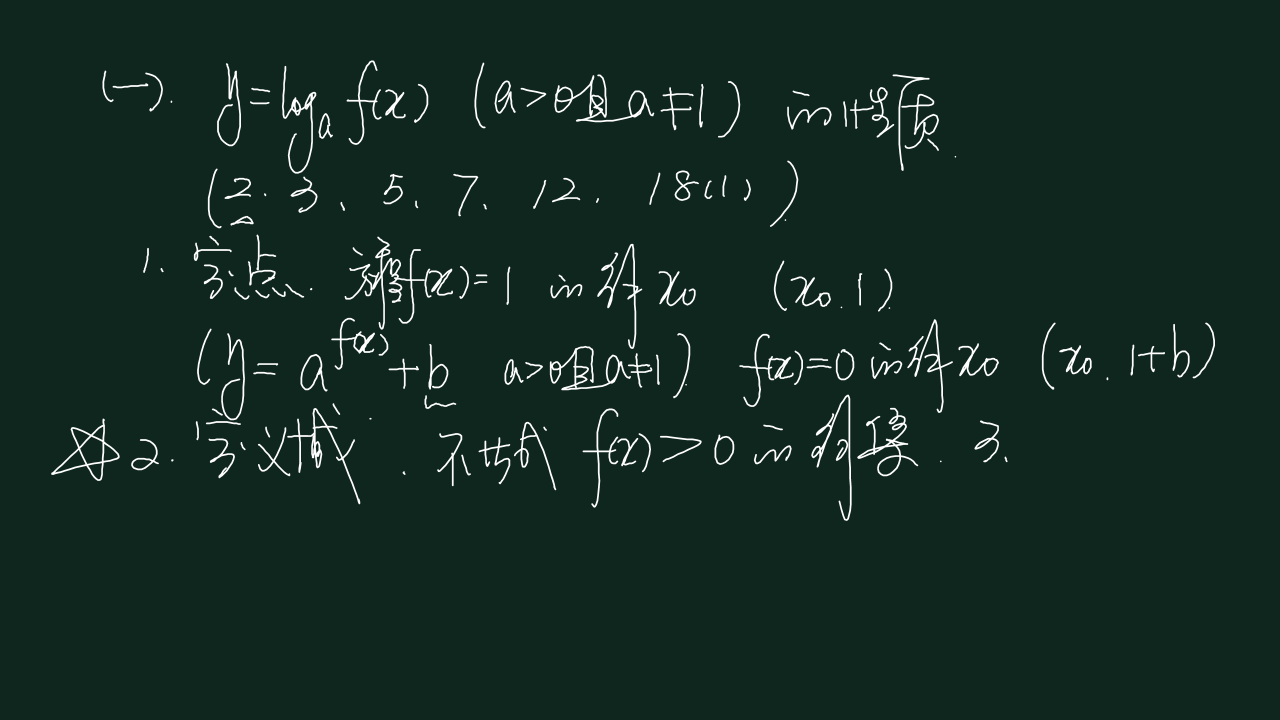 (一). y=logₐf(x) (a>0且a≠1) 的性质.
(2. 3、5、7、12、18(1))
1. 定点. 方程f(x)=1的解x₀ (x₀.1)
(y=a^f(x)+b a>0且a≠1) f(x)=0的解x₀ (x₀.1+b)
☆2. 定义域. 不等式f(x)>0的解集. 3.